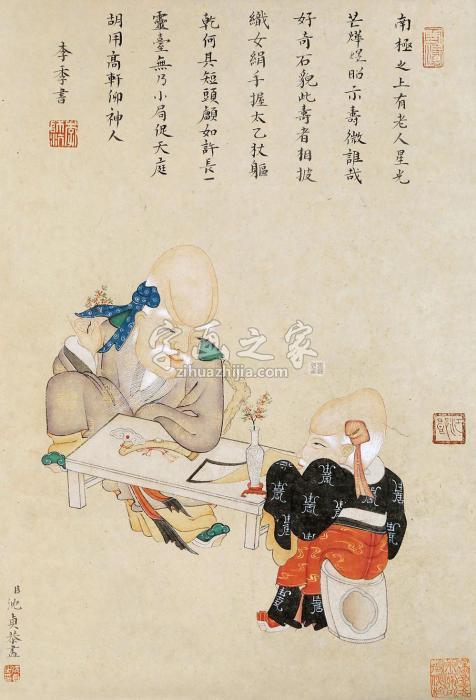 南極之上有老人星光
芒燁煜昭示壽徵誰哉
好奇石貌此壽者相披
織女絹手握太乙杖軀
乾何其短頭顱如許長一
靈臺無乃小局促天庭
胡用高軒仰神人
李季書
字画之家
zihuazhijia.com
池貞恭畫